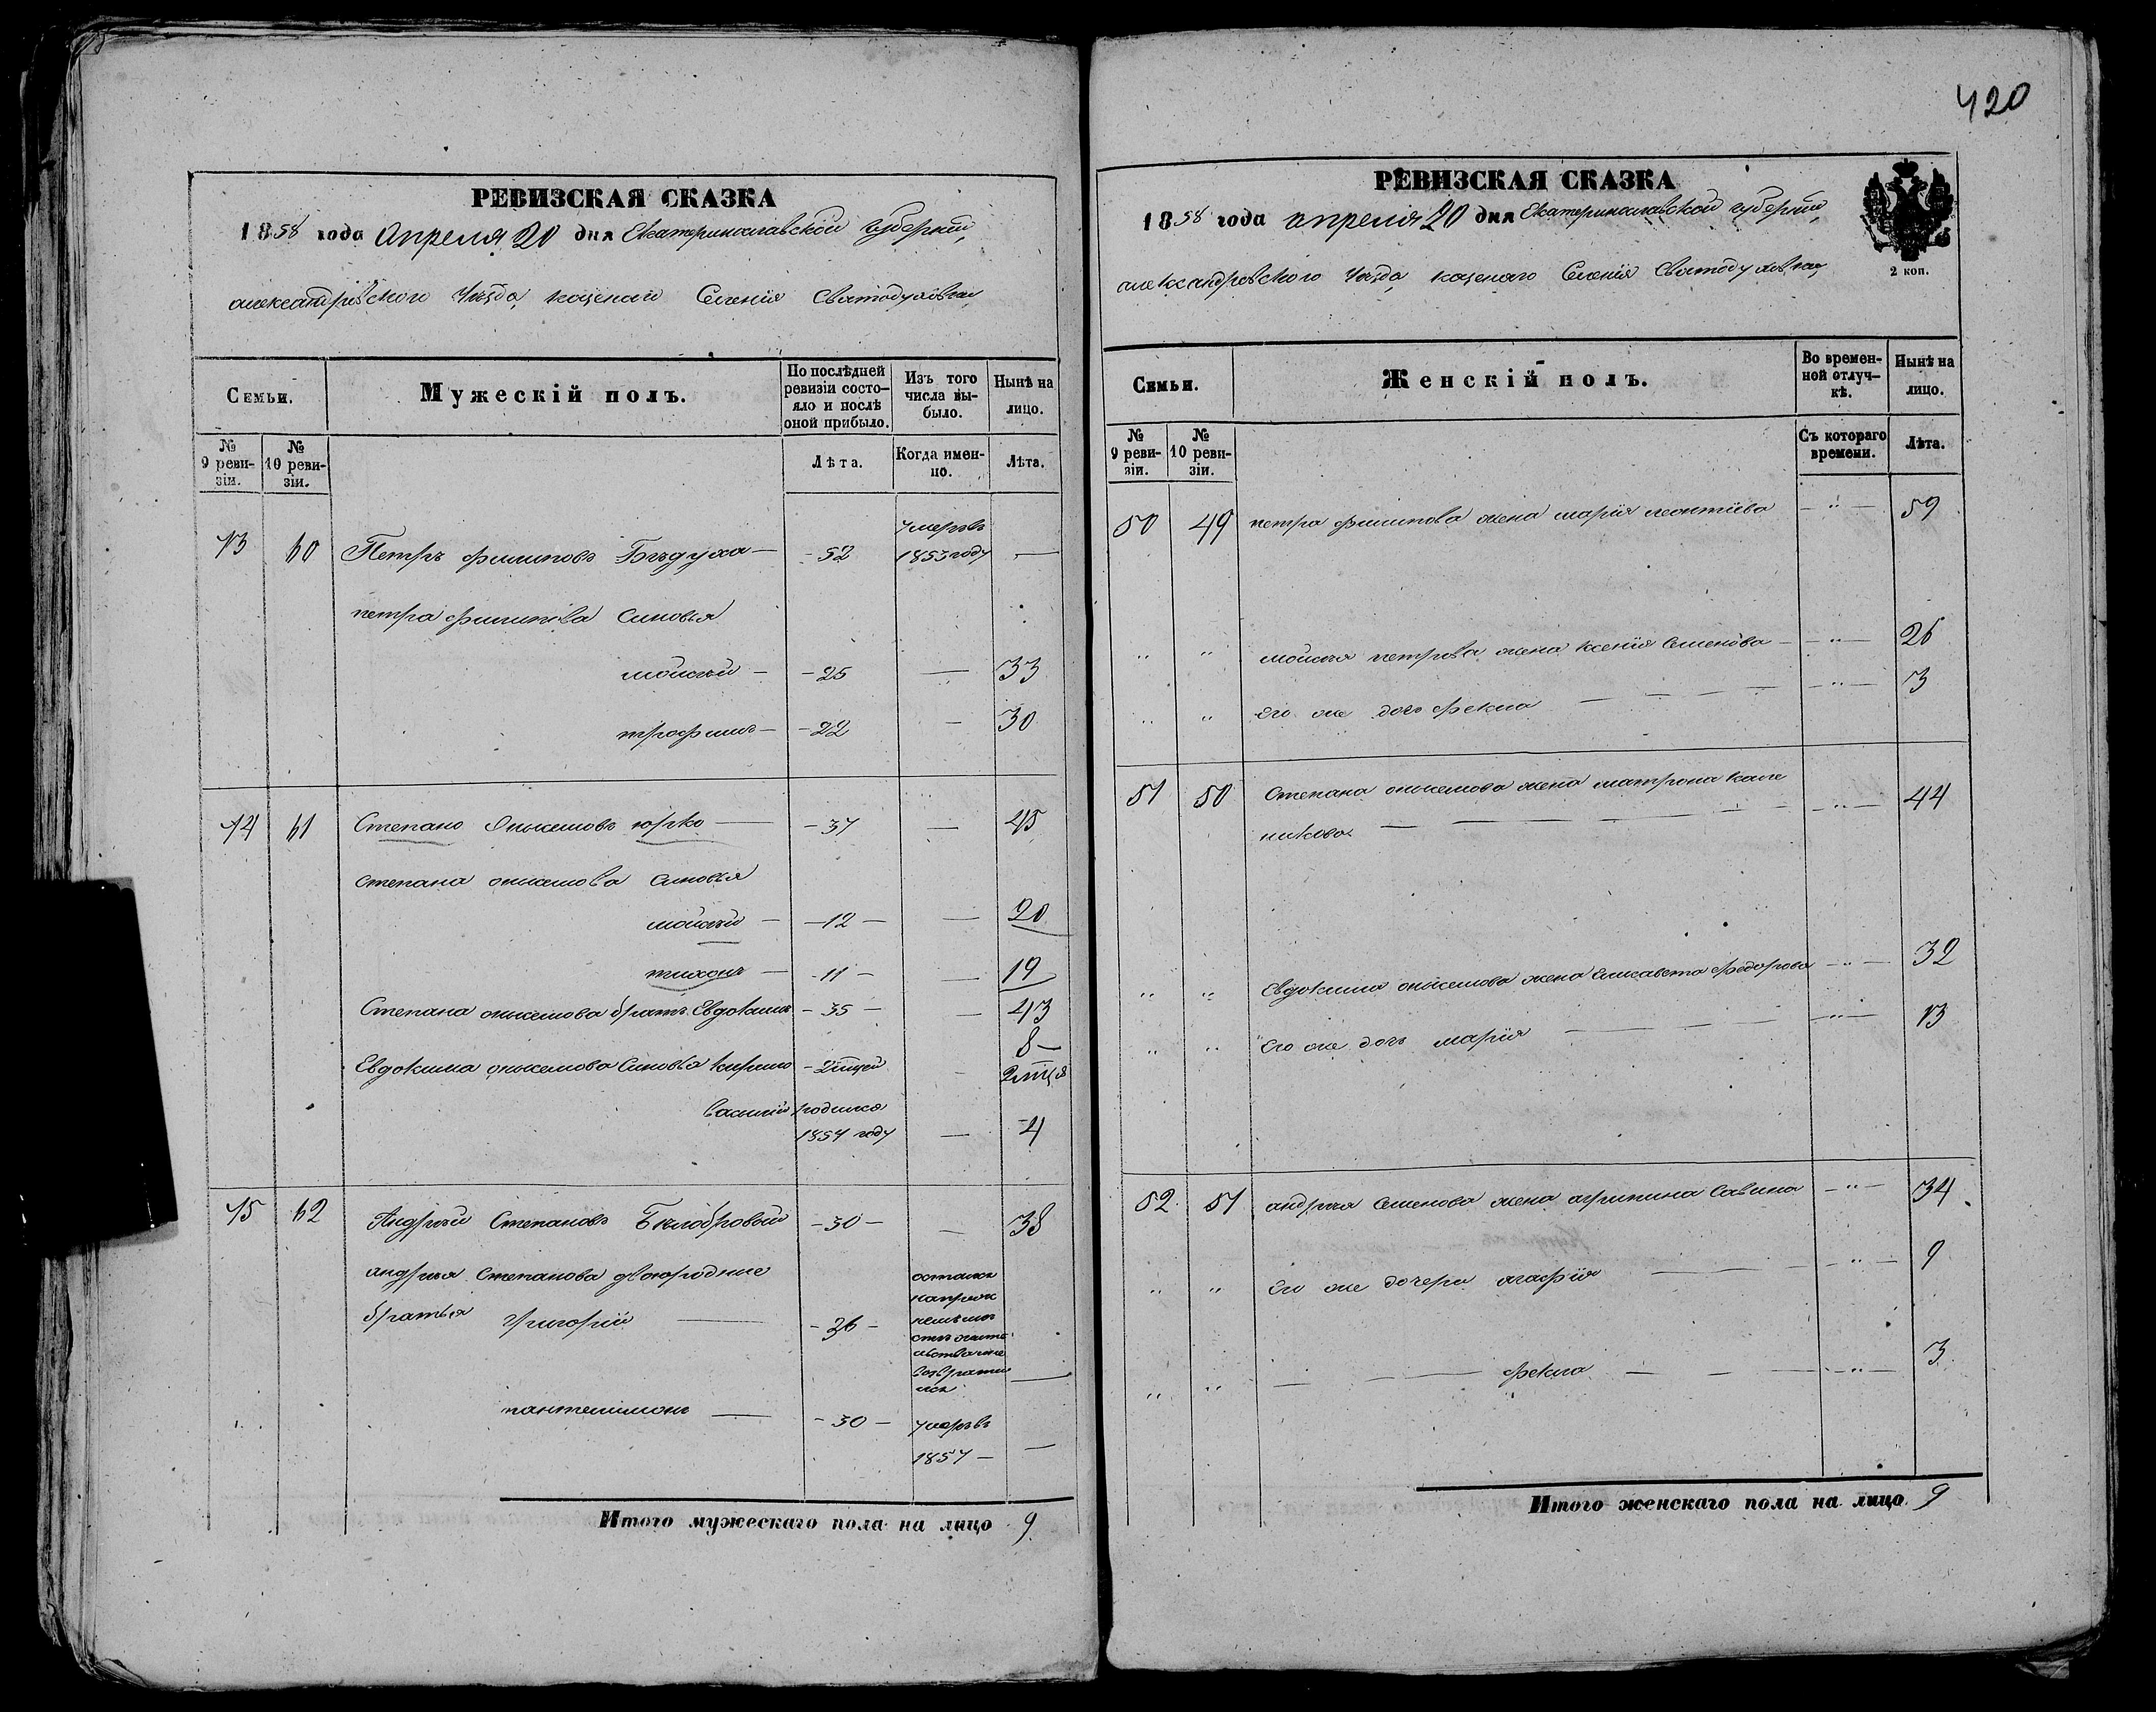 420
РЕВИЗСКАЯ СКАЗКА
1858 года Апреля 20 дня Екатеринославской губернии,
александровского Уезда, казенаго Селения Святодуховки,
Семьи.
Мужескій полъ.
По послѣдней ревизіи состо-
яло и послѣ
оной прибыло.
Изъ того
числа вы-
было.
Нынѣ на
лицо.
№
9 реви-
зіи.
№
10 реви-
зіи.
Лѣта.
Когда имен-
но.
Лѣта.
умеръ въ
60 Петръ филиповъ - 52 1853 году —
петра филипова Синовья
мойсей - - 25 — 33
трофимъ - - 22 — 30
61 Степано Онисимовъ юрко — - 37 — 45
степана онисимова Синовья
мойсей — — 12 — — 20
тихонъ — - 11 — — 19
Степана онисимова братъ Евдокимъ - 35 — — 43
8 —
Евдокима онисимова Синовья Кирило
василий родился
1854 году — 4
62 Андрей Степановъ Белобровой - 30 — — 38
андрея Степанова двоюродние
братья Григорий — - 26 —
пантелимонъ — - 30 — умеръ въ
1857 — —
Итого мужескаго пола на лицо 9
РЕВИЗСКАЯ СКАЗКА
1858 года апреля 20 дня Екатеринославской губернии,
александровского Уезда, казенаго Селения Святодуховки,
2 коп.
Семьи.
Женскій полъ.
Во времен-
ной отлуч-
кѣ.
Нынѣ на
лицо.
№
9 реви-
зіи.
№
10 реви-
зіи.
Съ котораго
времени.
Лѣта.
50 49 петра филипова жена мария леонтиева — " — 59
" " мойсея петрова жена ксения Семенова — " — 26
" " Его же дочь фекла — " — 3
51 50 Степана онисимова жена матрона кале
никова — " — 44
" " Евдокима онисимова жена Елисавета федорова — " — 32
" " Его же дочь мария — " — 13
52 51 андрея Семенова жена агрипина Савина — " — 34
" " Его же дочери агафия — " — 9
" " — фекла — " — 3
Итого женскаго пола на лицо 9